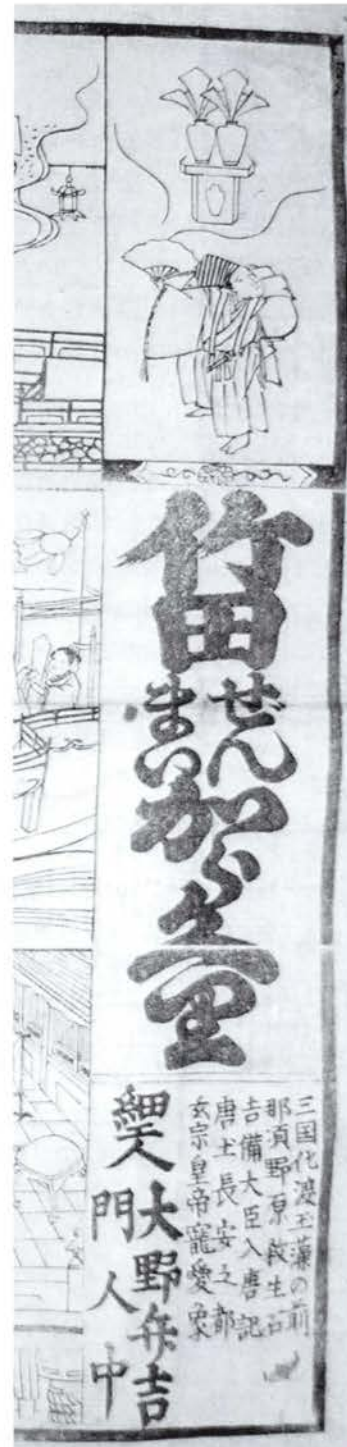 竹田
ぜんまい
加ら久里
三国化渡玉藻の前
那須野原殺生石
吉備大臣入唐記
唐土長安之都
玄宗皇帝寵愛象
細工人 大野弁吉
門人中